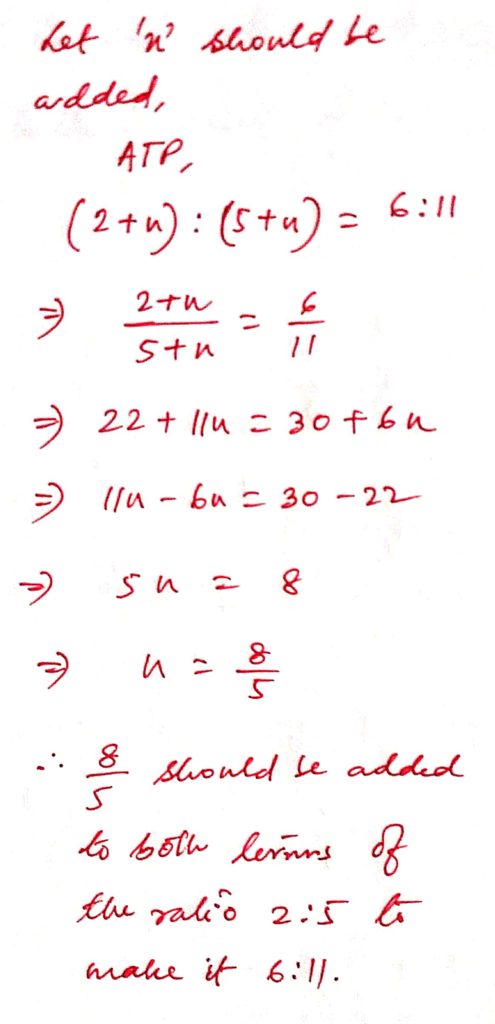 Let 'x' should be
added,
ATP,
(2+x) : (5+x) = 6:11
⇒ 2+x / 5+x = 6 / 11
⇒ 22 + 11x = 30 + 6x
⇒ 11x - 6x = 30 - 22
⇒ 5x = 8
⇒ x = 8/5
∴ 8/5 should be added
to both terms of
the ratio 2:5 to
make it 6:11.